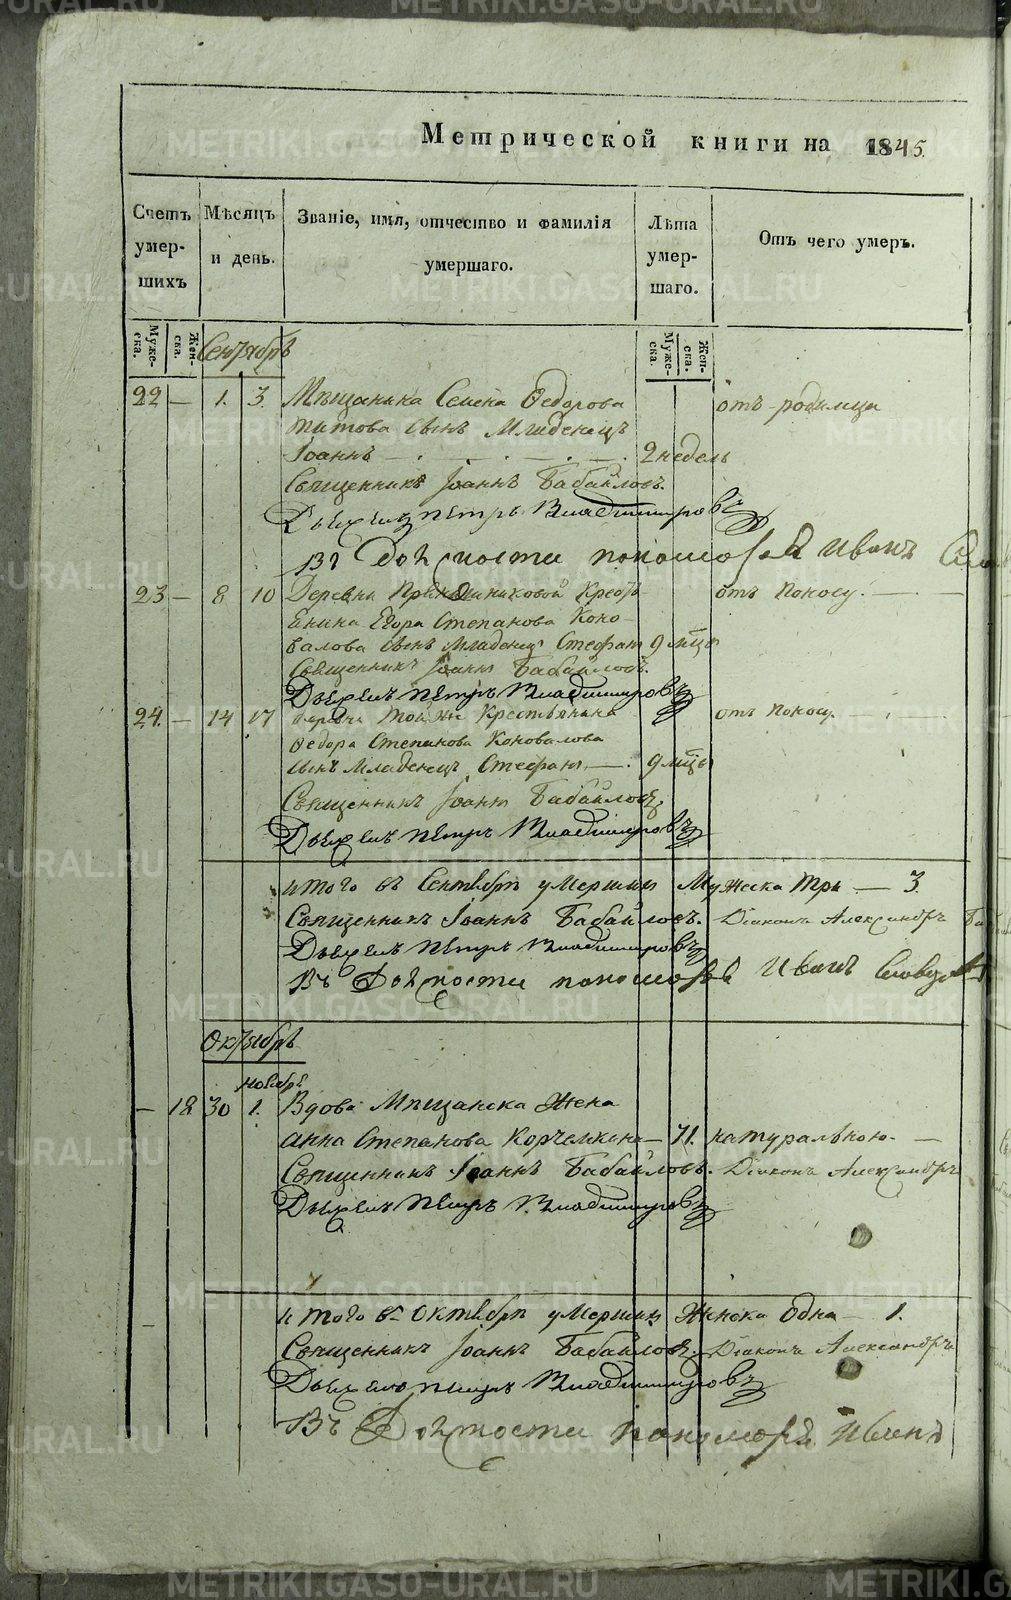 Метрической книги на 1845.
Счетъ умер- шихъ
Мѣсяцъ и день.
Званіе, имя, отчество и фамилія умершаго.
Лѣта умер- шаго.
Отъ чего умеръ.
Муже- ска. Жен- ска.
Сентябрь
Муже- ска. Жен- ска.
22 — 1. 3. Мѣщанина Семена Ѳедорова отъ родимца
Титова сынъ Младенецъ
Іоаннъ — . — . — . 2 недель
Священникъ Іоаннъ Бабайловъ.
Дьячекъ Петръ Владимировъ
Въ должности пономоря Иванъ
23 — 8 10 Деревни Кресть- отъ поносу. —
янина Егора Степанова Коно-
валова сынъ Младенецъ Стефанъ 9 мцъ
Священникъ Іоаннъ Бабайловъ.
Дьячекъ Петръ Владимировъ
24. — 14 17 Деревни той же Крестьянина отъ поносу.
Ѳедора Степанова Коновалова
сынъ Младенецъ Стефанъ — . 9 мцъ
Священникъ Іоаннъ Бабайловъ,
Дьячекъ Петръ Владимировъ
итого въ Сентябрѣ умершихъ Мужеска три — 3.
Священникъ Іоаннъ Бабайловъ. Діаконъ Александръ
Дьячекъ Петръ Владимировъ
Въ должности пономоря Иванъ Словцовъ
Октябрь
ноября
— 12 30 1. Вдова Мѣщанска Жена
Анна Степанова — 71. натуральною. —
Священникъ Іоаннъ Бабайловъ. Діаконъ Александръ
Дьячекъ Петръ Владимировъ
итого въ Октябрѣ умершихъ Женска одна — 1.
Священникъ Іоаннъ Бабайловъ. Діаконъ Александръ
Дьячекъ Петръ Владимировъ
Въ должности пономоря Иванъ
METRIKI.GASO-URAL.RU